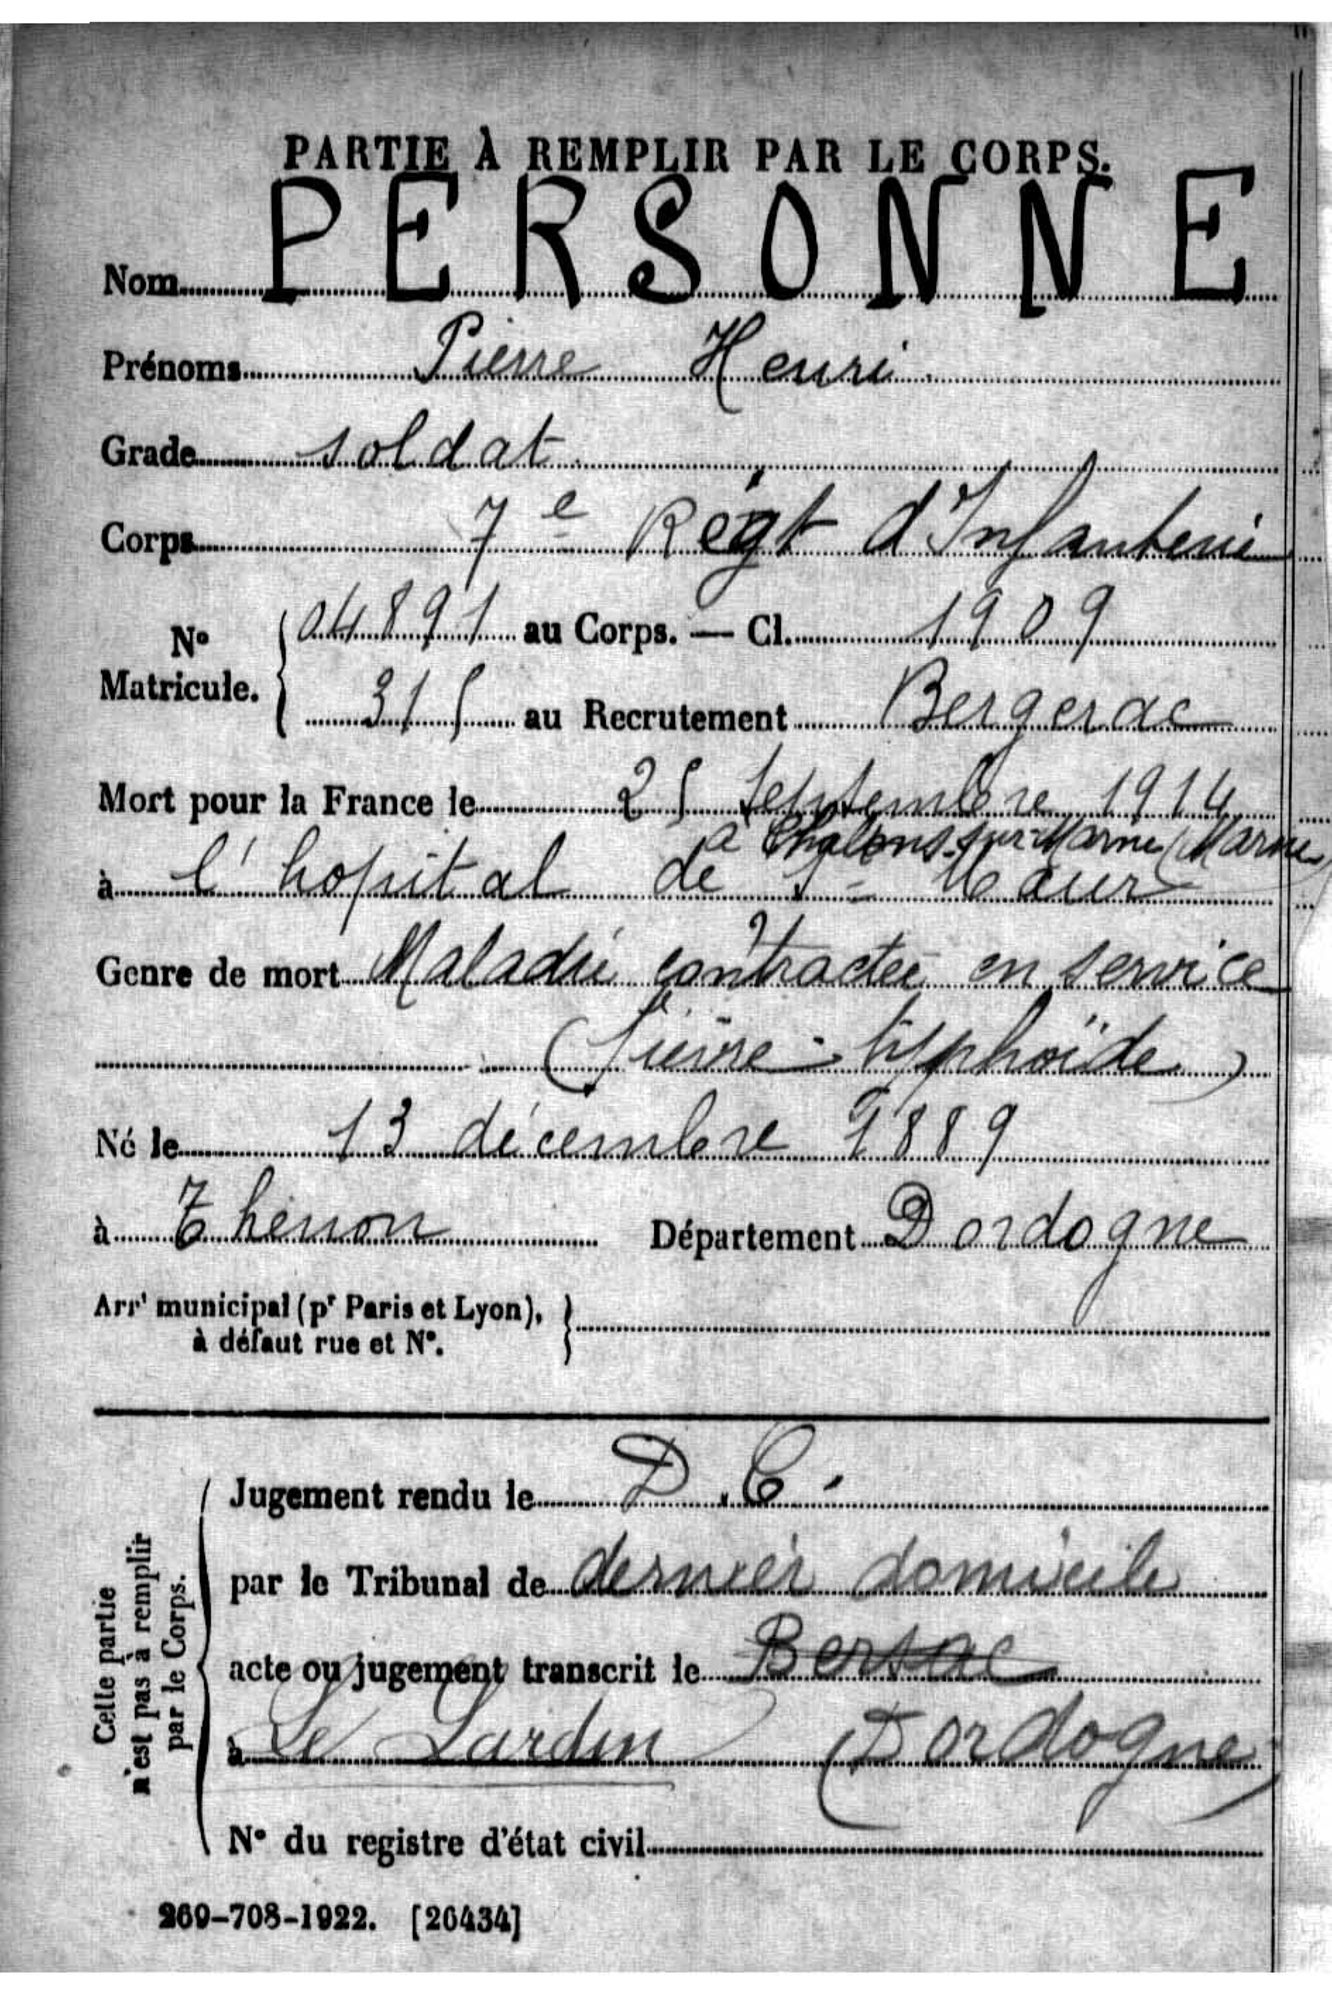 PARTIE À REMPLIR PAR LE CORPS.
Nom PERSONNE
Prénoms Pierre Henri
Grade soldat
Corps 7e Régt d'Infanterie
No Matricule. { 04891 au Corps. — Cl. 1909
315 au Recrutement Bergerac
Mort pour la France le 25 Septembre 1914
à Chalons-sur-Marne (Marne
à l'hopital de St Maur
Genre de mort Maladie contractée en service
(fièvre typhoïde)
Né le 13 décembre 1889
à Thenon Département Dordogne
Arrt municipal (pr Paris et Lyon), }
à défaut rue et No.
Cette partie
n'est pas à remplir
par le Corps.
Jugement rendu le D.C.
par le Tribunal de dernier domicile
acte ou jugement transcrit le Bersac
à Le Lardin (Dordogne)
No du registre d'état civil
269-708-1922. [26434]